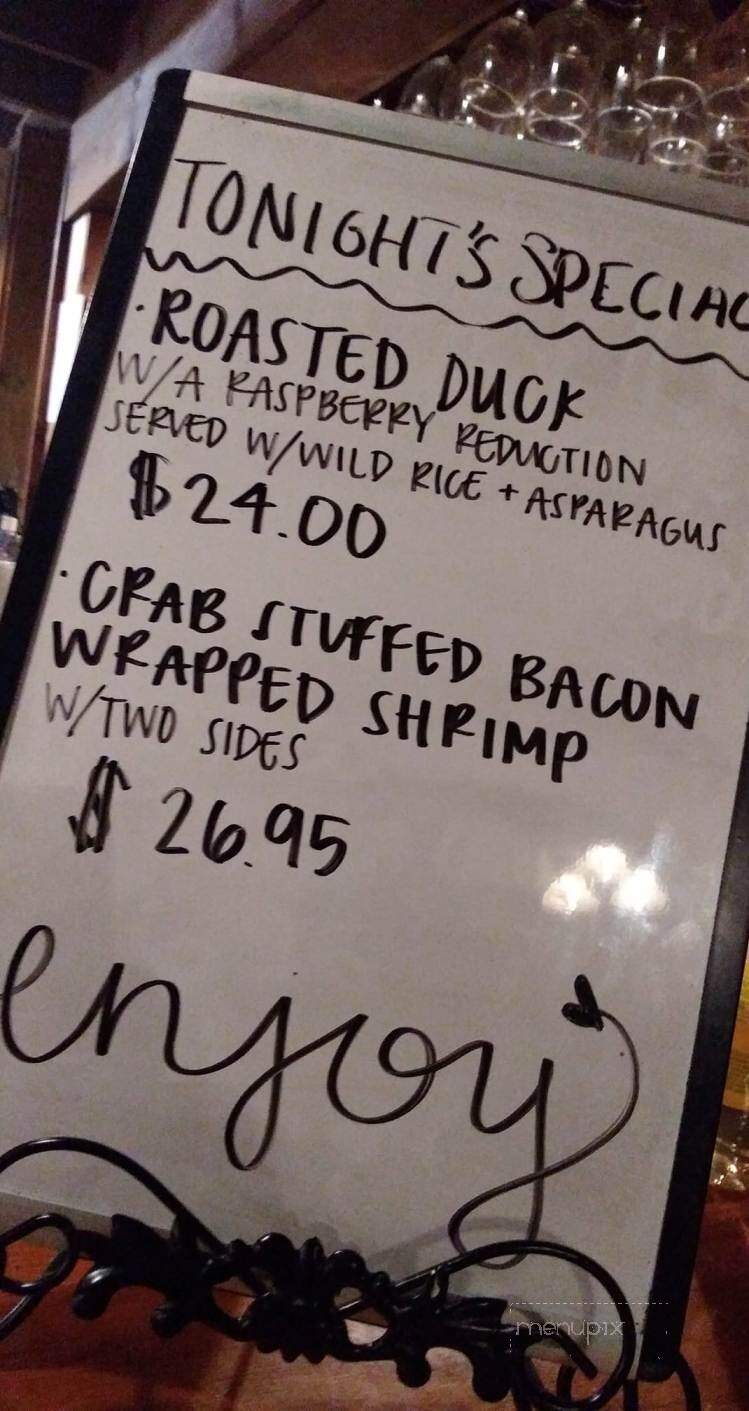 TONIGHT'S SPECIAL
· ROASTED DUCK
W/A RASPBERRY REDUCTION
SERVED W/WILD RICE + ASPARAGUS
$24.00
· CRAB STUFFED BACON
WRAPPED SHRIMP
W/TWO SIDES
$26.95
enjoy
menupix